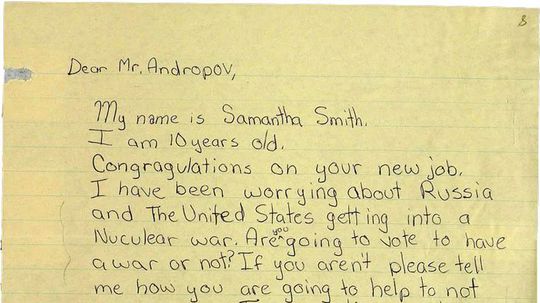 8
Dear Mr. Andropov,
My name is Samantha Smith.
I am 10 years old.
Congragulations on your new job.
I have been worrying about Russia
and The United States getting into a
Nuculear war. Are you going to vote to have
a war or not? If you aren't please tell
me how you are going to help to not